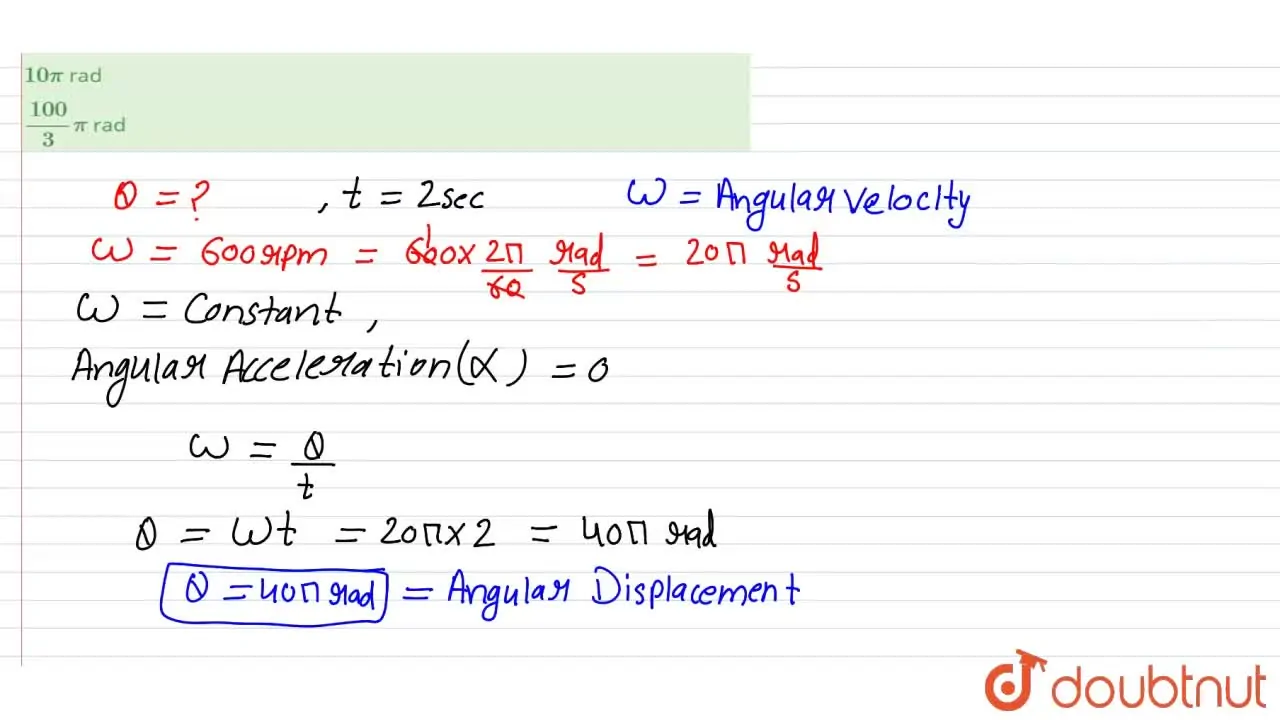 10π rad
100/3 π rad
θ = ? , t = 2sec ω = Angular Velocity
ω = 600rpm = 600 × 2π/60 rad/s = 20π rad/s
ω = Constant ,
Angular Acceleration(α) = 0
ω = θ/t
θ = ωt = 20π×2 = 40π rad
θ = 40π rad = Angular Displacement
doubtnut